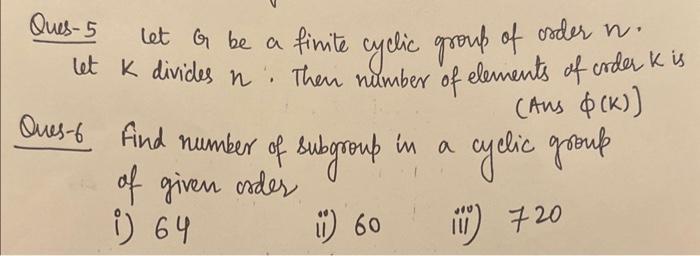 Ques-5 Let G be a finite cyclic group of order n.
Let K divides n. Then number of elements of order K is
(Ans ϕ(K)]
Ques-6 Find number of subgroup in a cyclic group
of given order
i) 64 ii) 60 iii) 720